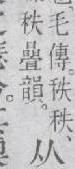 毛傳。秩秩、从
秩疊韻。